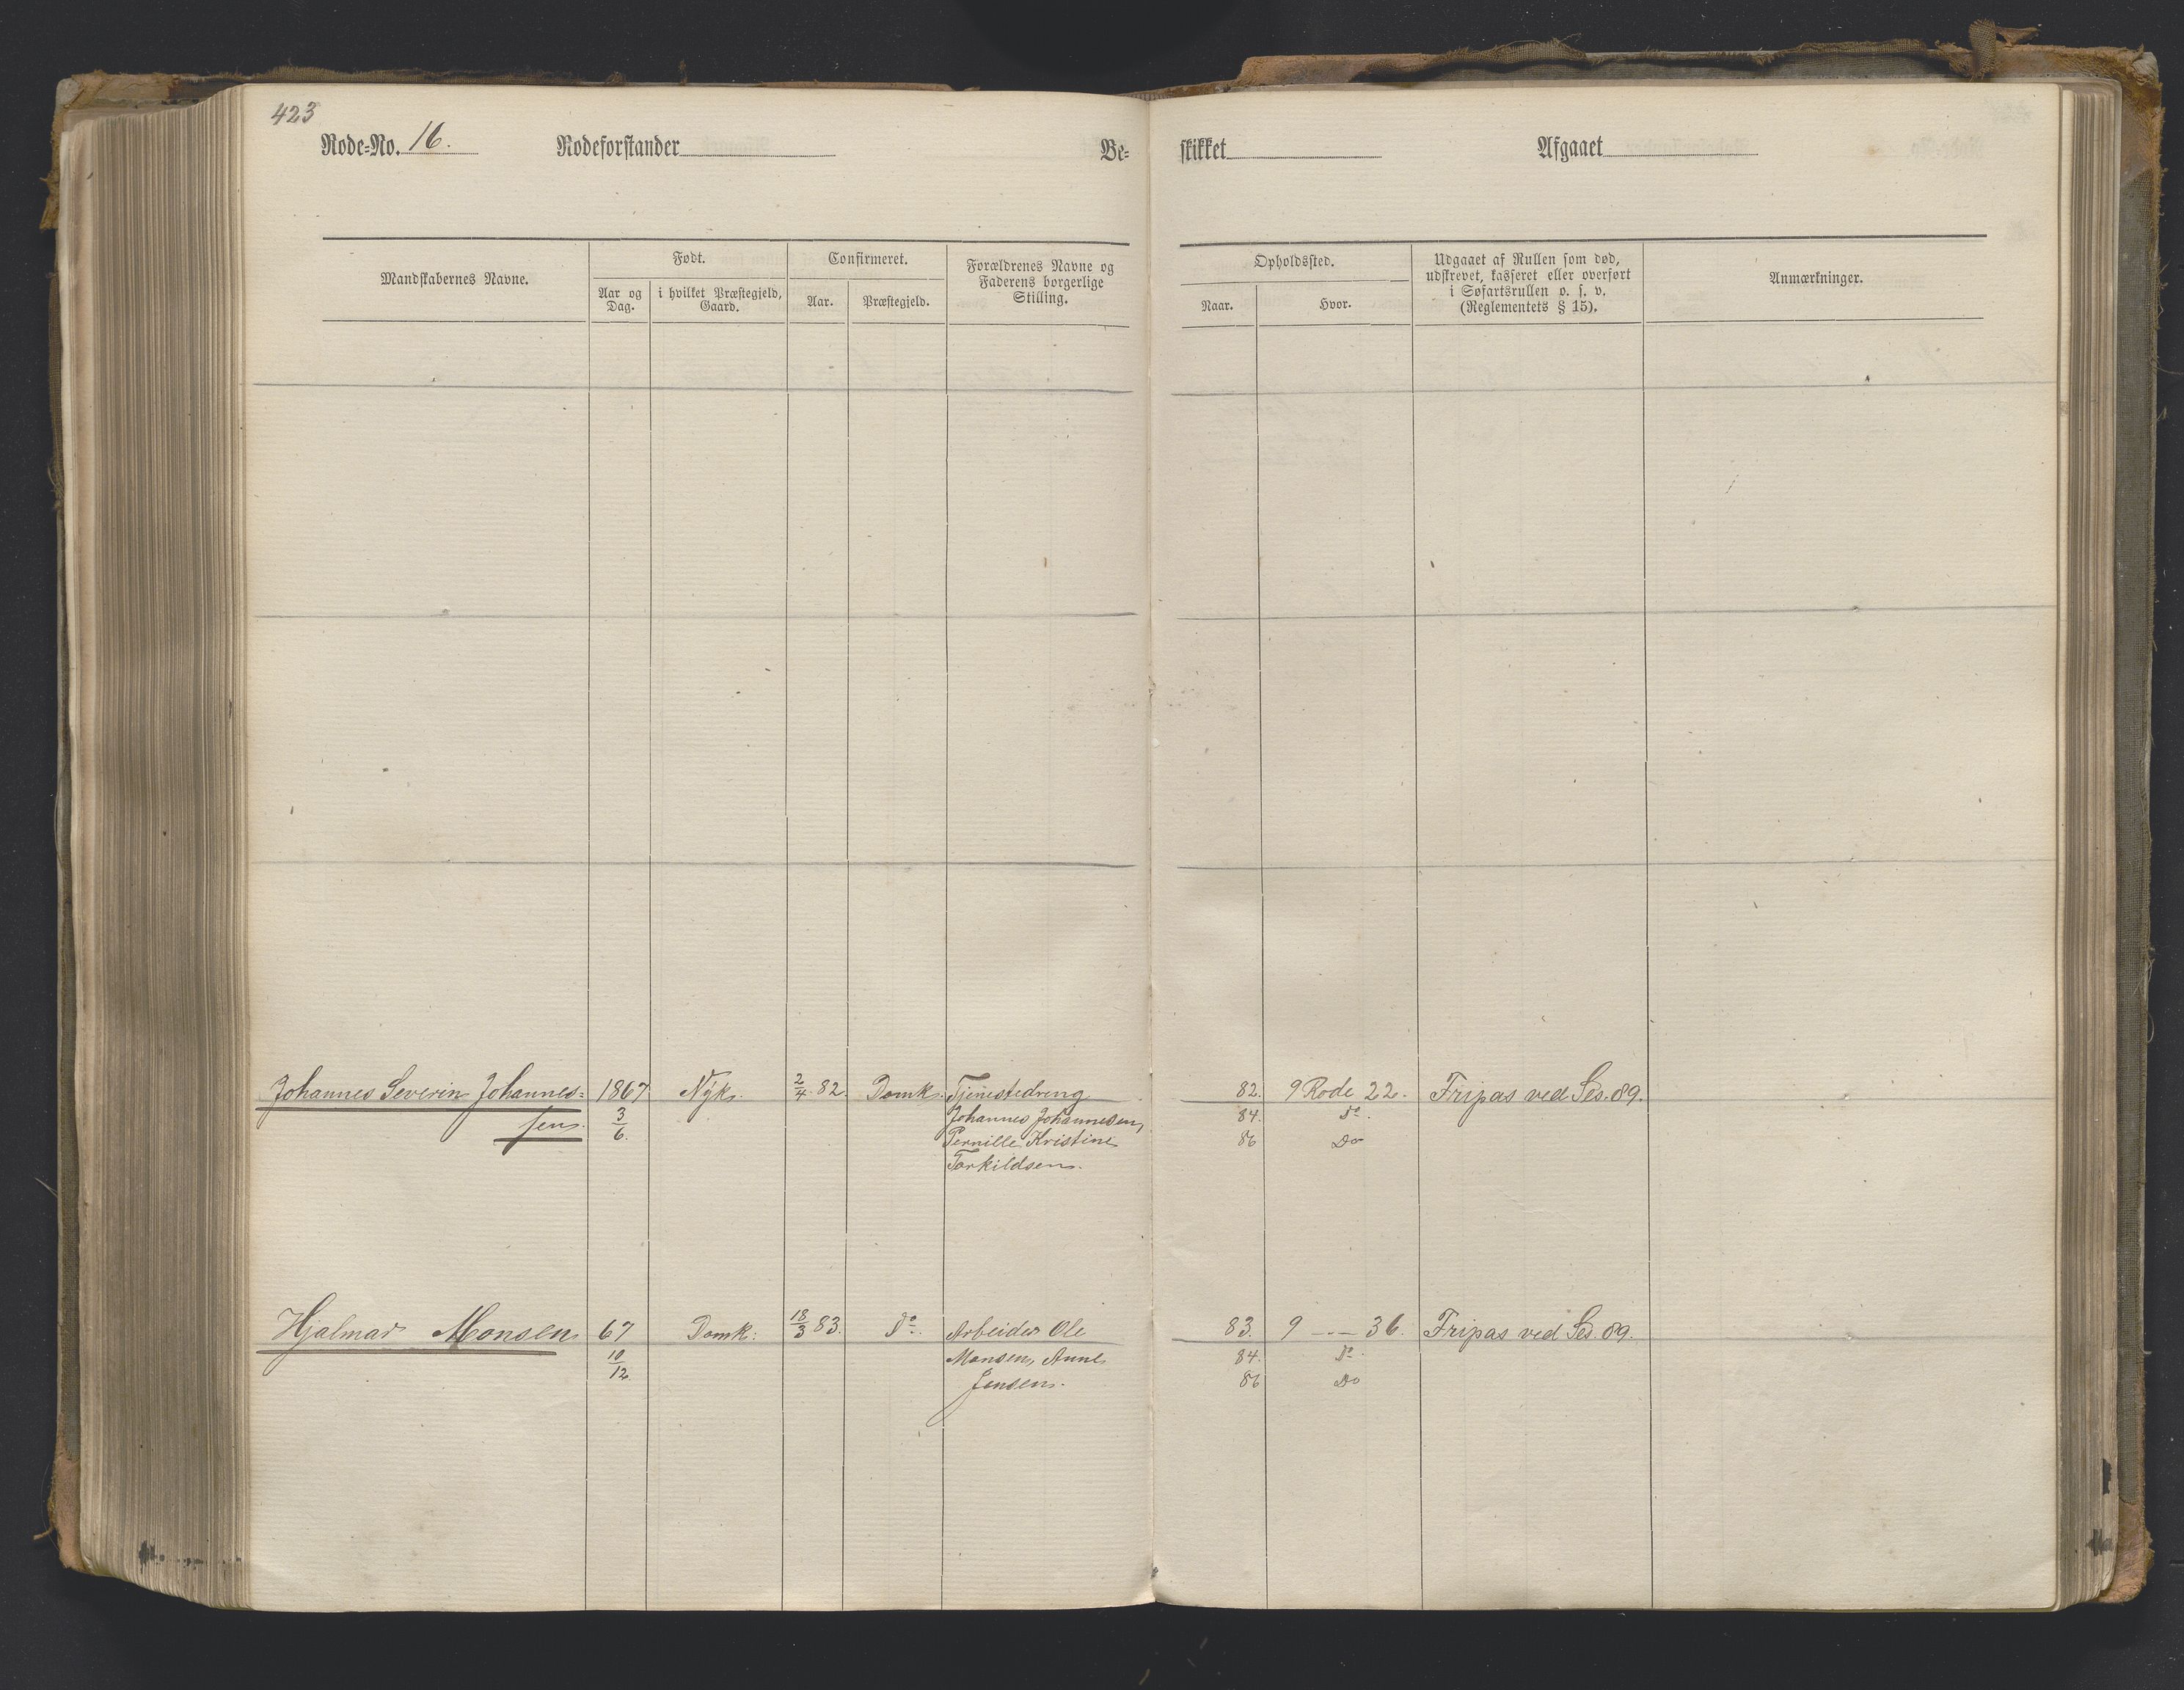 423
Rode-No. 16. Rodeforstander Be-
skikket Afgaaet
Mandskabernes Navne.
Født.
Aar og
Dag.
i hvilket Præstegjeld,
Gaard.
Confirmeret.
Aar.
Præstegjeld.
Forældrenes Navne og
Faderens borgerlige
Stilling.
Opholdssted.
Naar.
Hvor.
Udgaaet af Rullen som død,
udskrevet, kasseret eller overført
i Søfartsrullen o. s. v.
(Reglementets § 15).
Anmærkninger.
Johannes Severin Johannes= 1867 Nyk. 2/4 82. Domk. Tjenestedreng 82. 9 Rode 22. Fripas ved Ses. 89.
sen. 3/6. Johannes Johannesen, 84. Do.
Pernille Kristine 86 Do
Torkildsen.
Hjalmar Monsen 67 Domk. 18/3 83. Do. Arbeider Ole 83. 9 -- 36. Fripas ved Ses. 89.
10/12. Monsen, Anne 84. Do.
Jensen. 86 Do